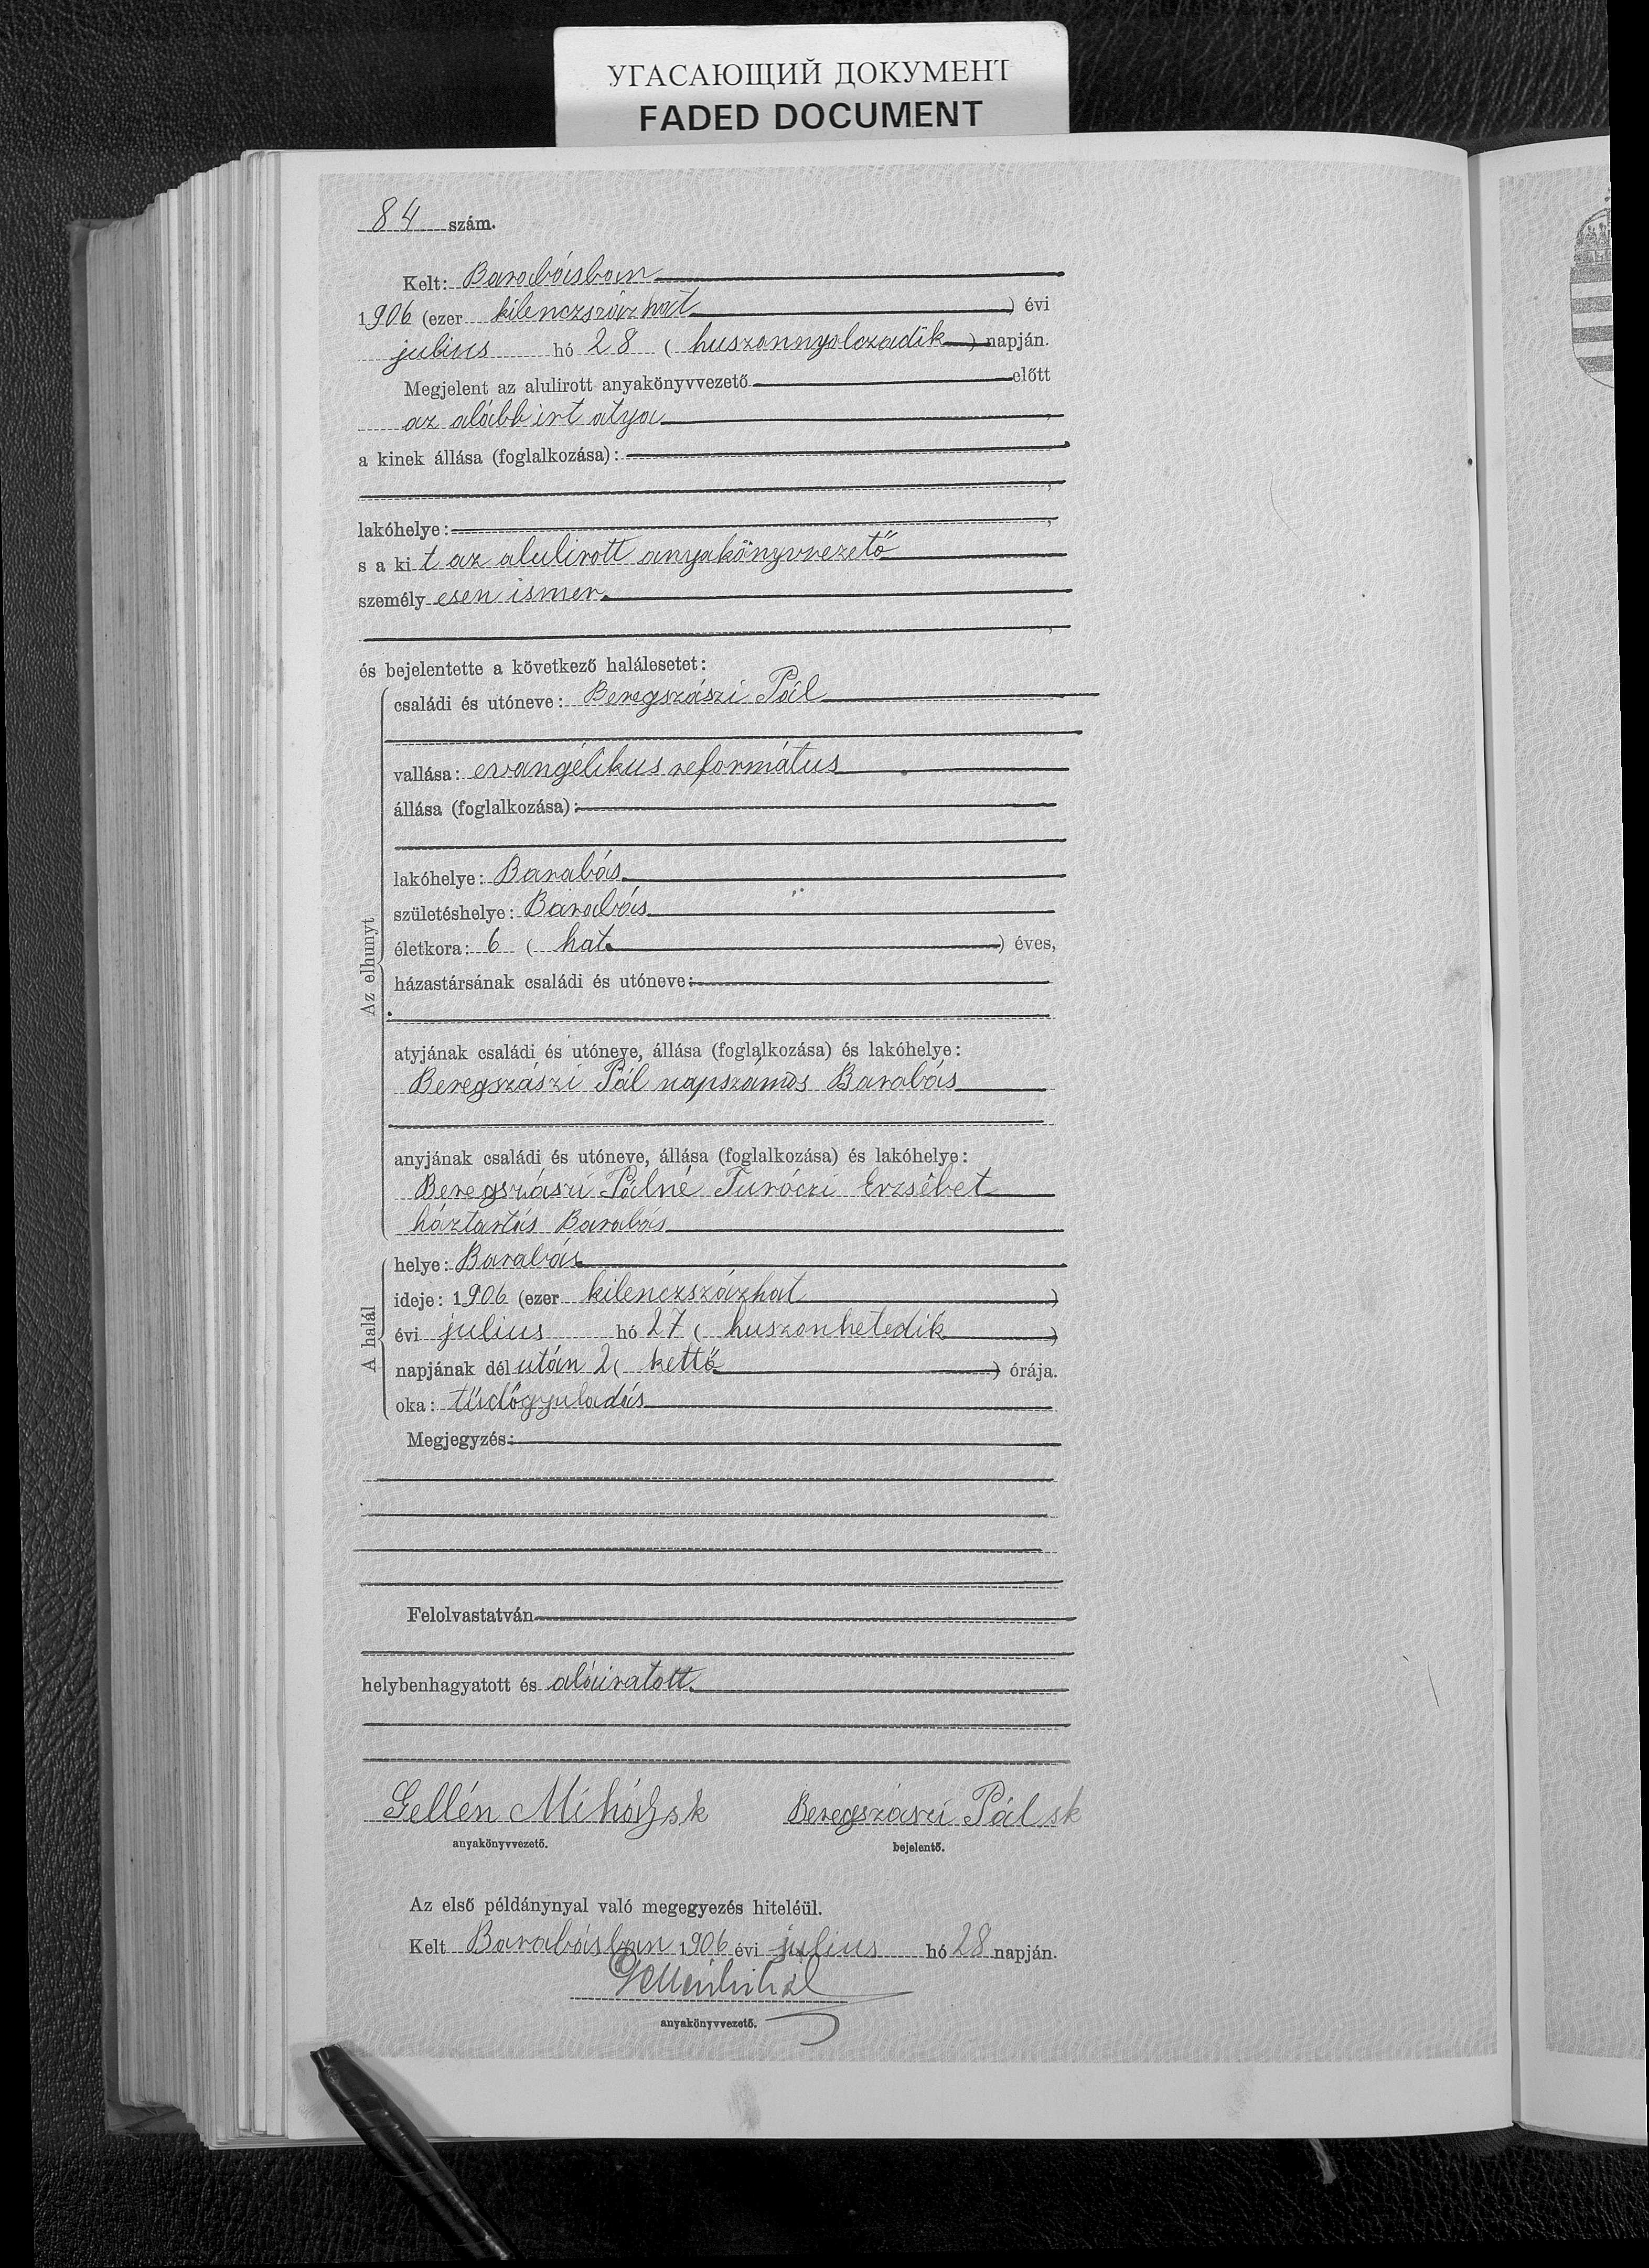 УГАСАЮЩИЙ ДОКУМЕНТ
FADED DOCUMENT
84 szám.
Kelt: Barabásban
1906 (ezer kilenczszázhat) évi
julius hó 28 (huszonnyolczadik) napján.
Megjelent az alulirott anyakönyvvezető előtt
az alább irt atya
a kinek állása (foglalkozása):
,
lakóhelye: ,
s a kit az alulirott anyakönyvvezető
személyesen ismer.
,
és bejelentette a következő halálesetet:
Az elhunyt
családi és utóneve: Beregszászi Pál
vallása: evangélikus református
állása (foglalkozása):
lakóhelye: Barabás
születéshelye: Barabás
életkora: 6 (hat) éves,
házastársának családi és utóneve:
atyjának családi és utóneve, állása (foglalkozása) és lakóhelye:
Beregszászi Pál napszámos Barabás
anyjának családi és utóneve, állása (foglalkozása) és lakóhelye:
Beregszászi Pálné Turóczi Erzsébet
háztartás Barabás
A halál
helye: Barabás
ideje: 1906 (ezer kilenczszázhat)
évi julius hó 27 (huszonhetedik)
napjának délután 2 (kettő) órája.
oka: tüdőgyuladás
Megjegyzés:
Felolvastatván
helybenhagyatott és aláiratott.
Gellén Mihály sk Beregszászi Pál sk
anyakönyvvezető. bejelentő.
Az első példánynyal való megegyezés hiteléül.
Kelt Barabásban 1906 évi julius hó 28 napján.
anyakönyvvezető.